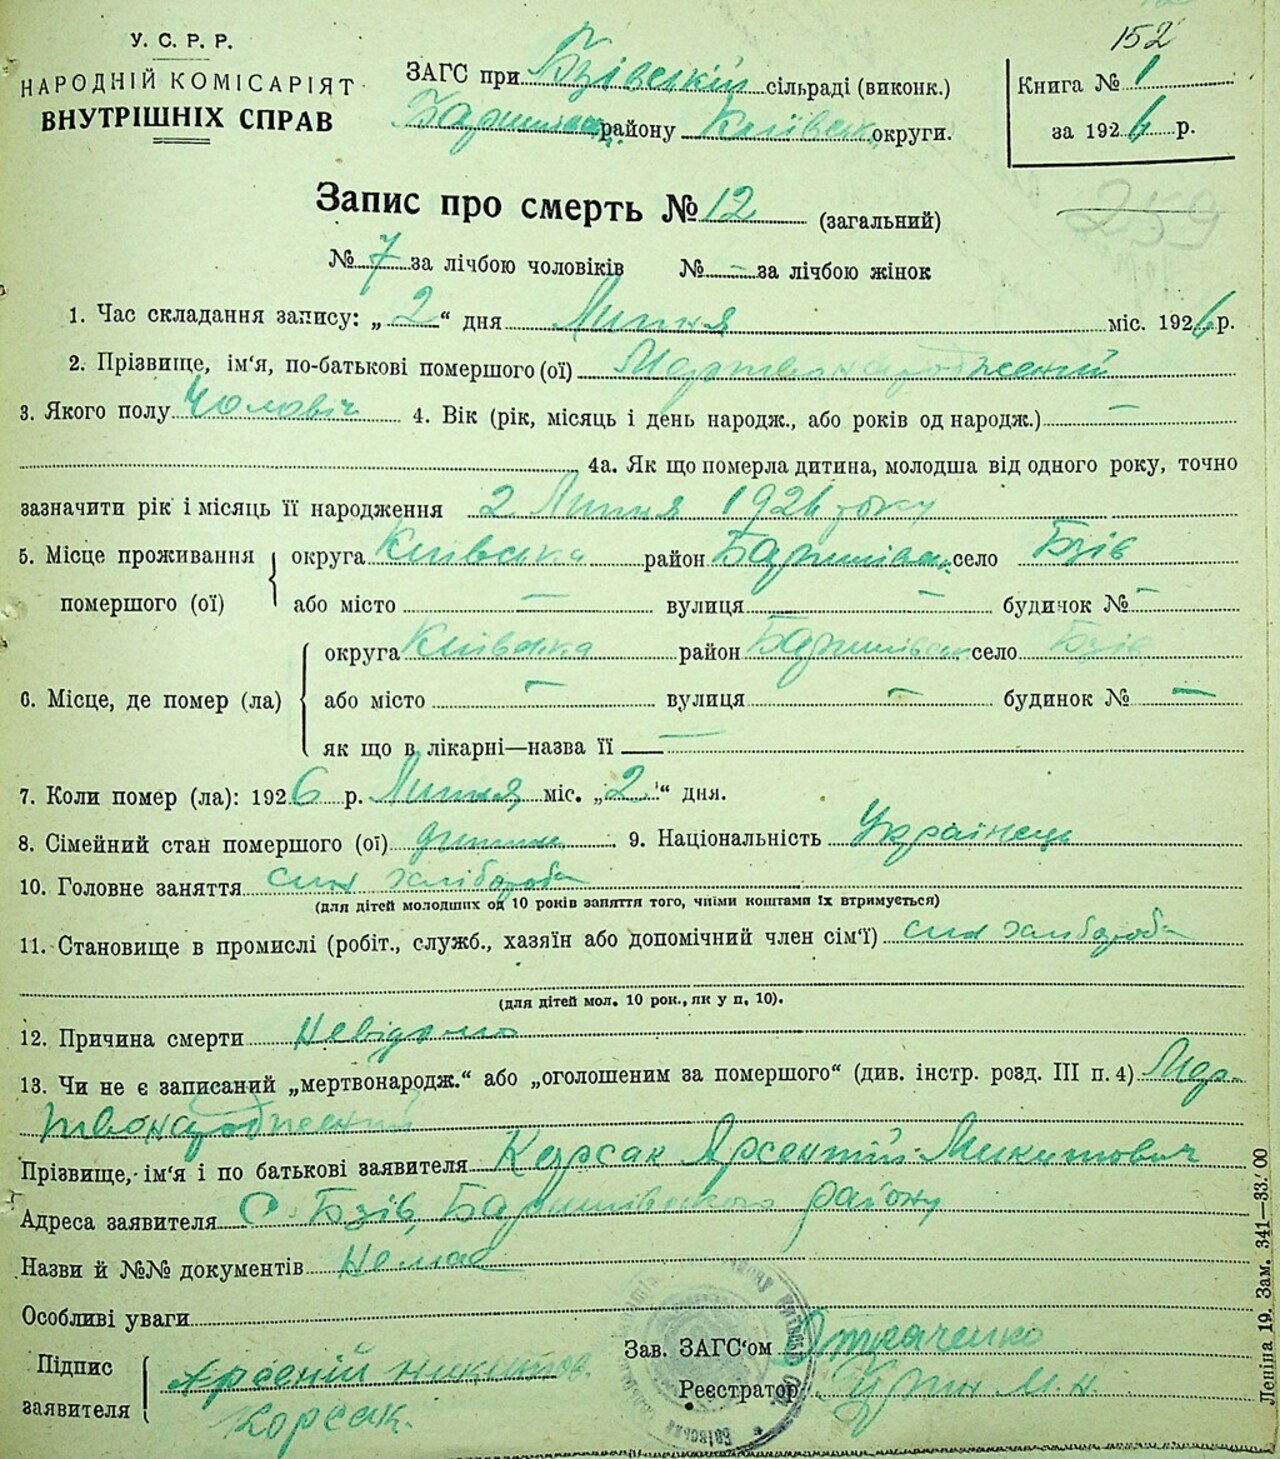 152
У. С. Р. Р.
НАРОДНІЙ КОМІСАРІЯТ
ВНУТРІШНІХ СПРАВ
ЗАГС при Бзівській сільраді (виконк.)
Баришівськ. району Київськ. округи.
Книга № 1
за 1926 р.
259
Запис про смерть № 12 (загальний)
№ 7 за лічбою чоловіків № – за лічбою жінок
1. Час складання запису: „2“ дня Липня міс. 1926 р.
2. Прізвище, ім'я, по-батькові помершого (ої) Мертвонароджений
3. Якого полу Чоловіч 4. Вік (рік, місяць і день народж., або років од народж.) —
4а. Як що померла дитина, молодша від одного року, точно
зазначити рік і місяць її народження 2 Липня 1926 року
5. Місце проживання помершого (ої) округа Київська район Баришівськ. село Бзів
або місто — вулиця — будинок № —
6. Місце, де помер (ла) округа Київська район Баришівськ село Бзів
або місто — вулиця — будинок № —
як що в лікарні—назва її —
7. Коли помер (ла): 1926 р. Липня міс. „2“ дня.
8. Сімейний стан помершого (ої) дитина 9. Національність Українець
10. Головне заняття син хлібороба
(для дітей молодших од 10 років заняття того, чиїми коштами їх втримується)
11. Становище в промислі (робіт., служб., хазяїн або допомічний член сім'ї) син хлібороба
(для дітей мол. 10 рок., як у п. 10).
12. Причина смерти Невідомо
13. Чи не є записаний „мертвонародж.“ або „оголошеним за помершого“ (див. інстр. розд. III п. 4) Мер-
твонароджений
Прізвище, ім'я і по батькові заявителя Корсак Арсентій Микитович
Адреса заявителя С. Бзів, Баришівського району
Назви й №№ документів Немає
Особливі уваги
Підпис заявителя Арсеній Никитов.
Корсак.
Зав. ЗАГС'ом Ткаченко
Реєстратор М. Н.
Леніна 19. Зам. 341—33.